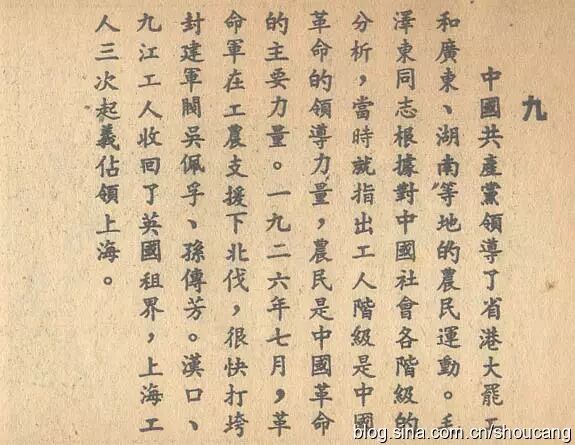 九
中國共產黨領導了省港大罷工
和廣東、湖南等地的農民運動。毛
澤東同志根據對中國社會各階級的
分析，當時就指出工人階級是中國
革命的領導力量，農民是中國革命
的主要力量。一九二六年七月，革
命軍在工農支援下北伐，很快打垮
封建軍閥吳佩孚、孫傳芳。漢口、
九江工人收回了英國租界，上海工
人三次起義佔領上海。
blog.sina.com.cn/shoucang